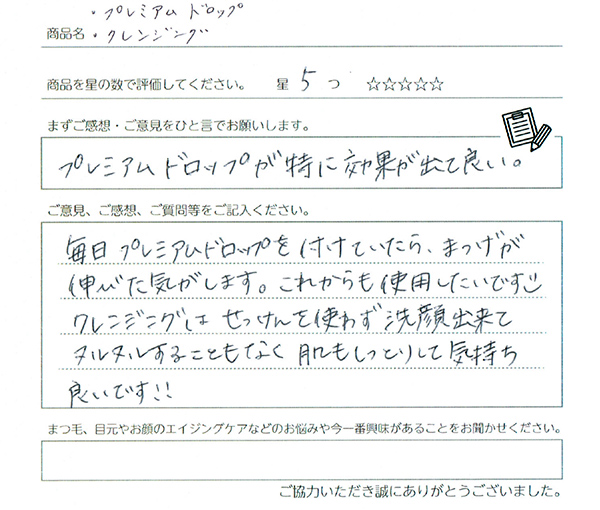 ・プレミアムドロップ
商品名・クレンジング
商品を星の数で評価してください。 星 5 つ ☆☆☆☆☆
まずご感想・ご意見をひと言でお願いします。
プレミアムドロップが特に効果が出て良い。
ご意見、ご感想、ご質問等をご記入ください。
毎日プレミアムドロップを付けていたら、まつげが
伸びた気がします。これからも使用したいです
クレンジングはせっけんを使わず洗顔出来て
ヌルヌルすることもなく肌もしっとりして気持ち
良いです!!
まつ毛、目元やお顔のエイジングケアなどのお悩みや今一番興味があることをお聞かせください。
ご協力いただき誠にありがとうございました。